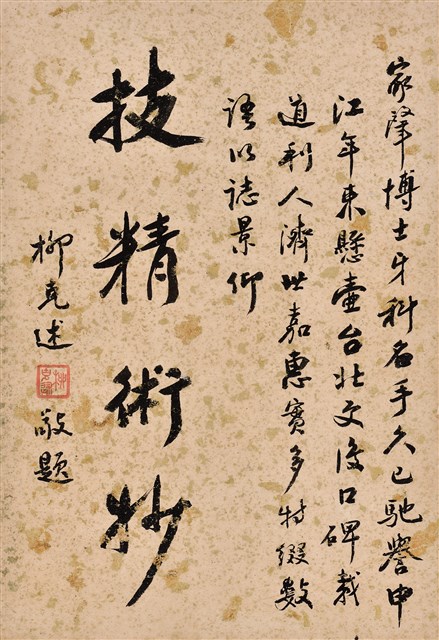 家肇博士牙科名手久已馳譽申
江年來懸壺台北口碑載
道利人濟世嘉惠實多特綴數
語以誌景仰
技精術妙
柳克述
敬題